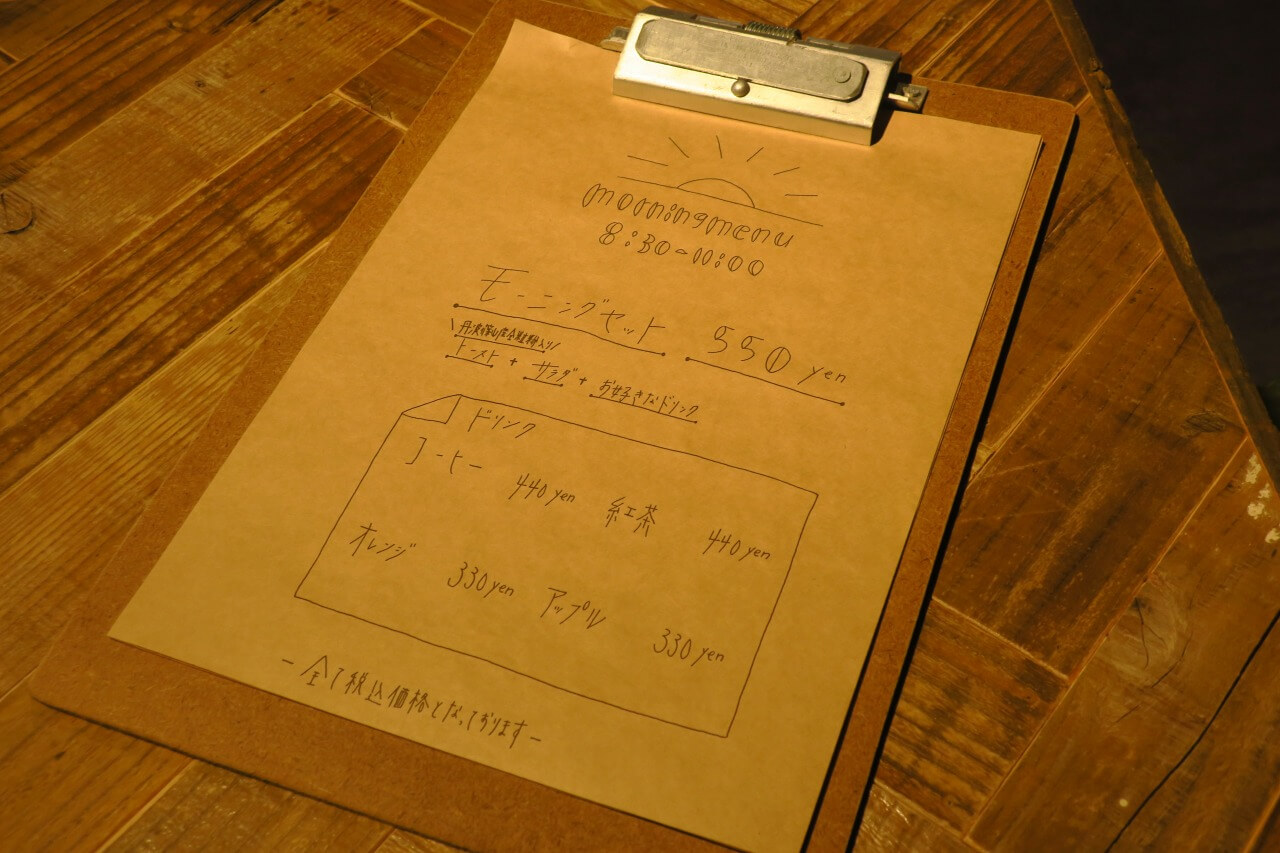 morningmenu
8:30~11:00
モーニングセット 550 yen
\丹波篠山産 入り/
トースト + サラダ + お好きなドリンク
ドリンク
コーヒー 440 yen 紅茶 440 yen
オレンジ 330 yen アップル 330 yen
- 全て税込価格となっております -